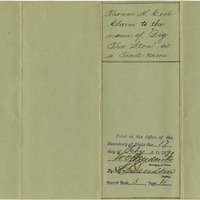 Thomas H. Cook
Claim to the
name of "Big
Tree Store" as
a Trade name
Filed in the Office of the
Secretary of State the 17
day of A.D. 1890
Secretary of State
By
Deputy
Record Book 3 Page